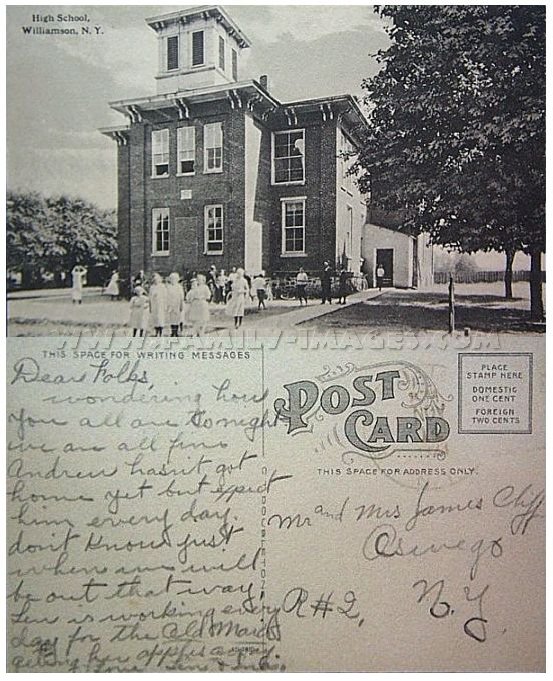 High School,
Williamson, N. Y.
WWW.FAMILY-IMAGES.COM
THIS SPACE FOR WRITING MESSAGES
Dear Folks,
wondering how
you all are tonight
we are all fine
Andrew hasn't got
home yet but expect
him every day.
don't know just
when we will
be out that way,
Len is working every
day for the Old Maid
geting her apples away.
Love Len &
POST
CARD
THIS SPACE FOR ADDRESS ONLY.
PLACE
STAMP HERE
DOMESTIC
ONE CENT
FOREIGN
TWO CENTS
Mr and Mrs James Cliff
Oswego
R#2, N.Y.